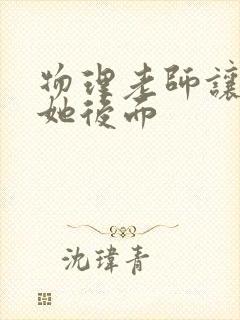 物理老師讓
她後而
沈瑋青